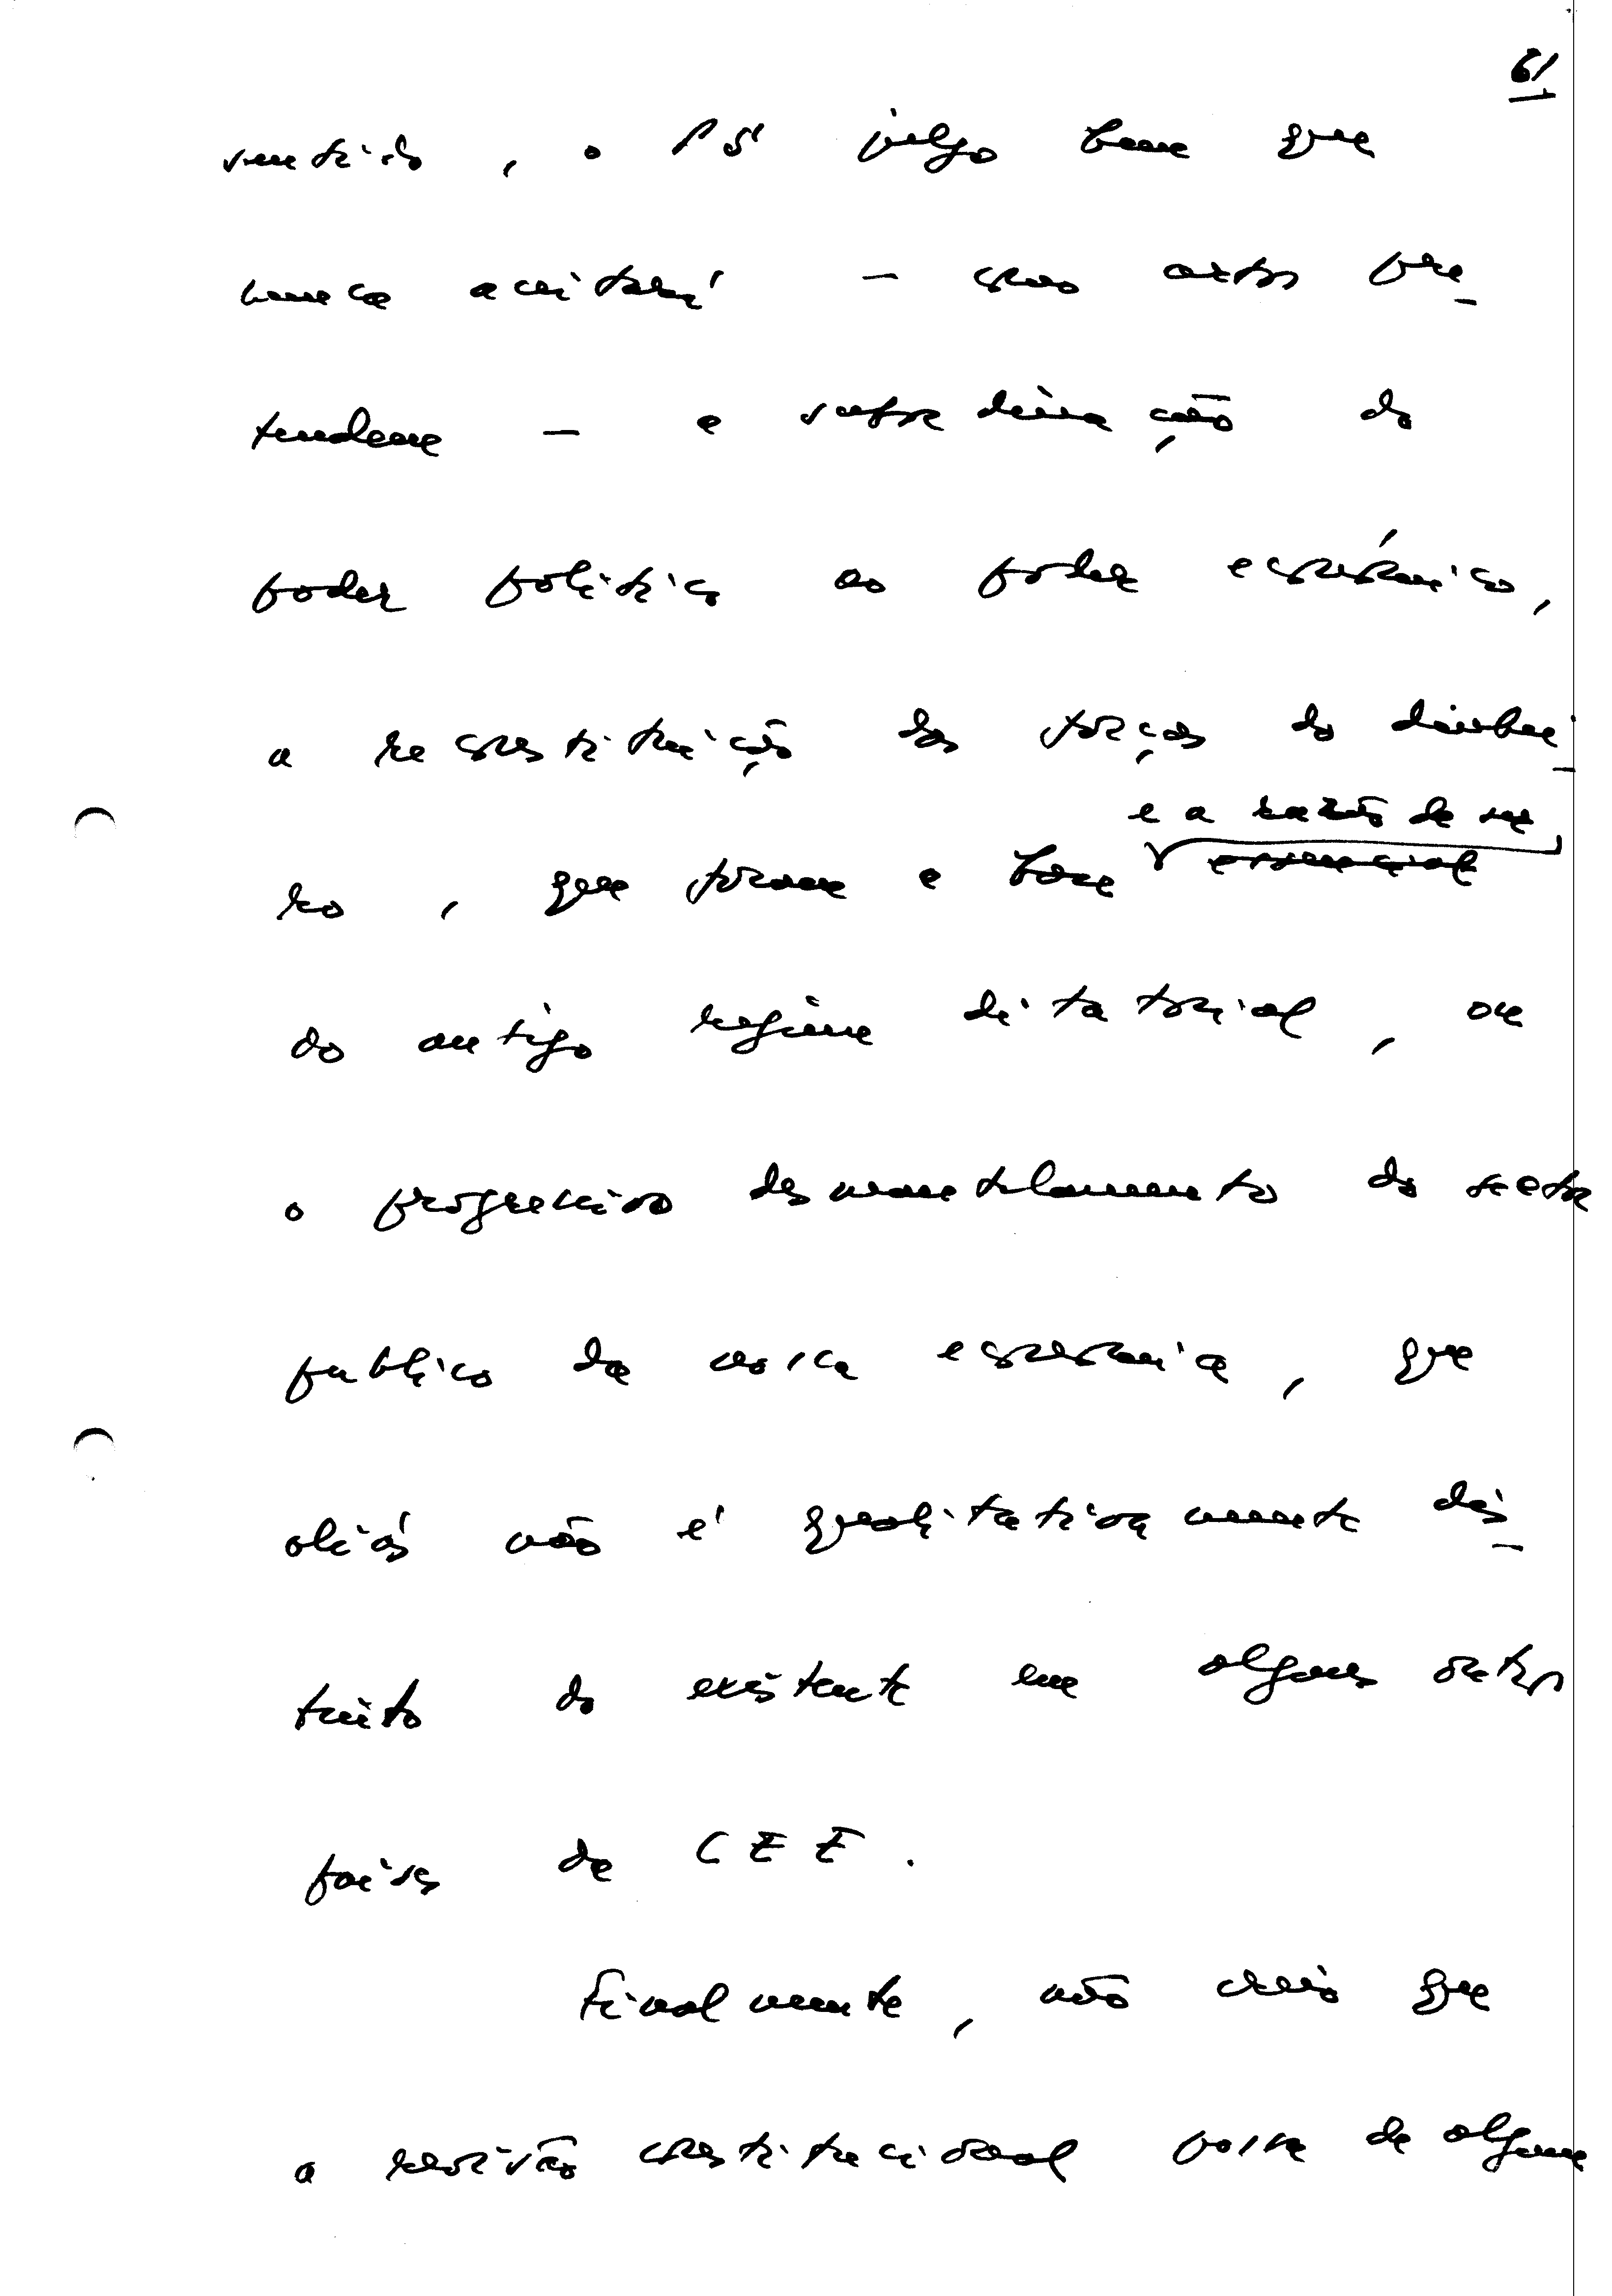 61
sentido, o PS julgo bem que
nunca aceitará – como outros pre-
tendem – a subordinação do
poder político ao poder económico,
a reconstituição das forças do dinhei-
e a razão de ser
ro, que foram a base essencial
do antigo regime ditatorial, ou
o progressivo desmantelamento do sector
publico da nossa economia, que
aliás não é qualitativamente dis-
tinto do existente em alguns outros
países da CEE.
Finalmente, não creio que
a revisão constitucional possa de algum